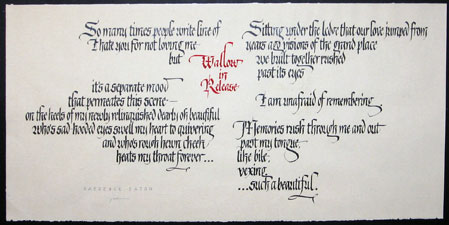 So many times people write line of
I hate you for not loving me
but
Wallow
in
Release
it's a separate mood
that permeates this scene—
on the heels of my newly relinquished dearly oh beautiful
who's sad hooded eyes swell my heart to quivering
and who's rough hewn cheek
heats my throat forever...
Sitting under the ledge that our love jumped from
years & visions of the grand place
we built together rushed
past its eyes
I am unafraid of remembering
Memories rush through me and out
past my tongue
like bile;
vexing
...such a beautiful.